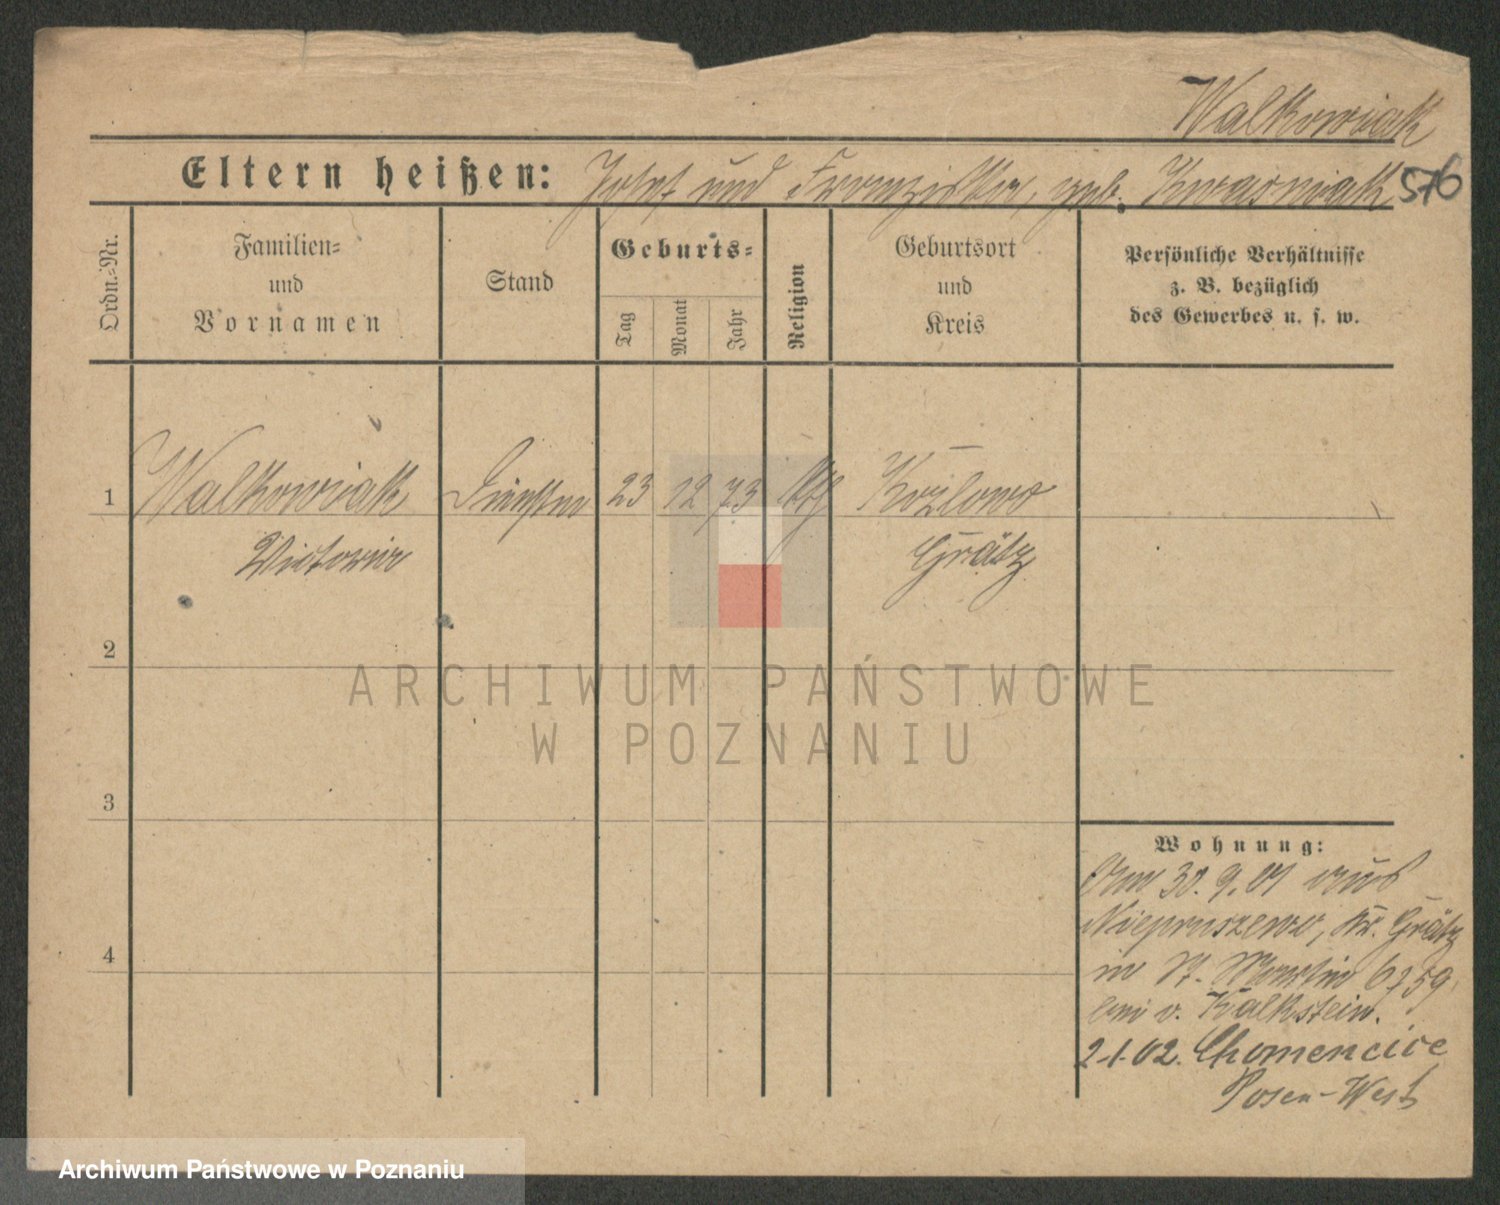 Walkowiak
Eltern heißen: Josef und Franziska, geb. Kwasniak 576
Ordn.=Nr.
Familien=
und
Vornamen
Stand
Geburts=
Tag
Monat
Jahr
Religion
Geburtsort
und
Kreis
Persönliche Verhältnisse
z. B. bezüglich
des Gewerbes u. s. w.
1 Walkowiak 23 12 73 kth Kozlowo
Victoria Grätz
2
3
4
Wohnung:
Am 30.9.01 aus
Niepruszewo, Kr. Grätz
in St. Martin 67 59
bei v. Kalkstein.
2.1.02. Chomencice
Posen-West
ARCHIWUM PAŃSTWOWE
W POZNANIU
Archiwum Państwowe w Poznaniu